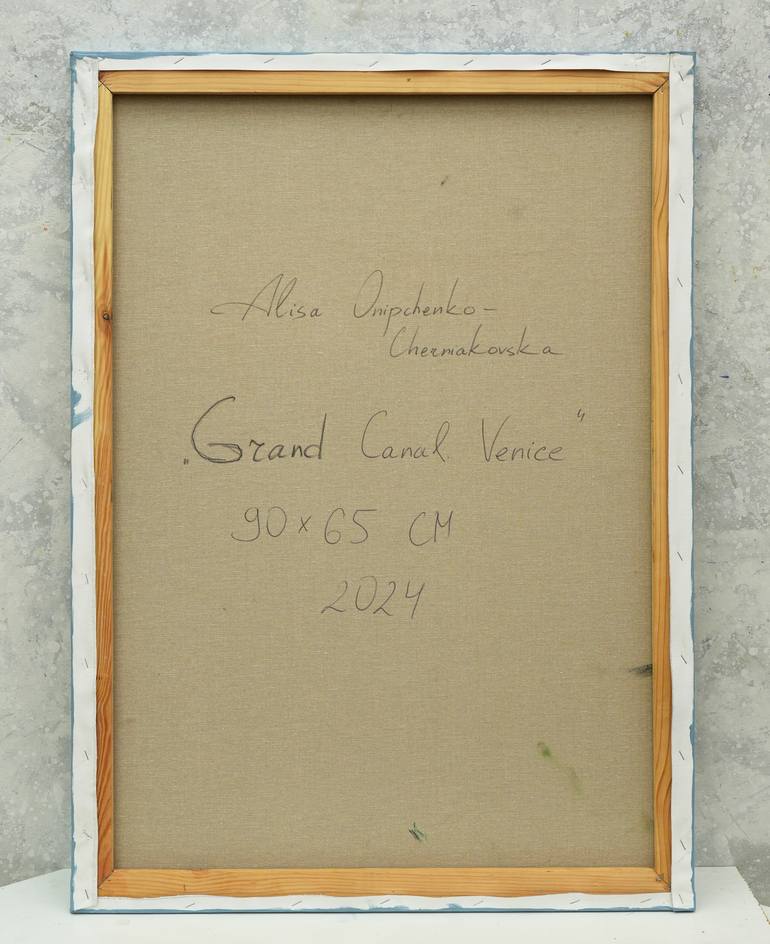 Alisa Onipchenko-
Chermakovska
„Grand Canal. Venice“
90 x 65 CM
2024